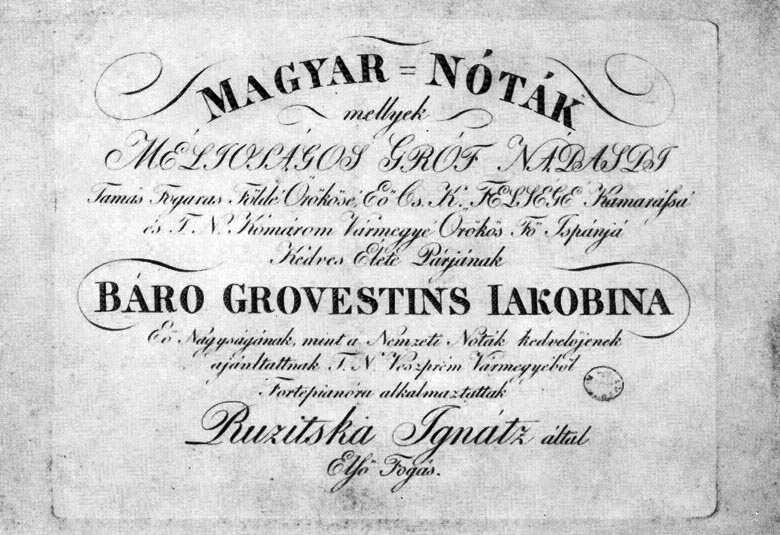 MAGYAR = NÓTÁK
mellyek
MÉLTOSÁGOS GRÓF NÁDASDI
Tamás Fogaras Földe Örökösé, Eő Cs. K. FELSEGE Kamarássá
és T. N. Kómárom Vármegye Örökös Fő Ispánjá
Kedves Elete Párjának
BÁRO GROVESTINS IAKOBINA
Eő Nagyságának, mint a Nemzeti Nóták kedvelőjenek
ajánltattnak T. N. Veszprém Vármegyéből
Fortepianóra alkalmaztattak
Ruzitska Ignátz által
Elsö Fogás.